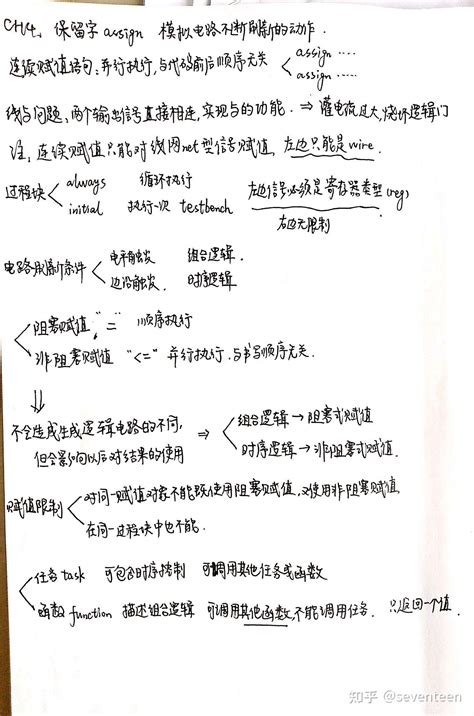 CH4、保留字 assign 模拟电路不断刷新的动作.
连续赋值语句:并行执行,与代码前后顺序无关 assign ....
assign ....
线与问题、两个输出信号直接相连,实现与的功能. ⇒ 灌电流过大,烧坏逻辑门
注:连续赋值只能对线网net型信号赋值,左边只能是wire.
过程块 always 循环执行
initial 执行一次 testbench 左边信号必须是寄存器类型(reg)
右边无限制
电路刷新条件 电平触发 组合逻辑.
边沿触发. 时序逻辑.
阻塞赋值 "=" 顺序执行
非阻塞赋值 "<=" 并行执行.与书写顺序无关.
⇓
不会造成生成逻辑电路的不同, ⇒ 组合逻辑→阻塞式赋值
但会影响以后对结果的使用 时序逻辑→非阻塞式赋值.
赋值限制 对同一赋值对象不能既使用阻塞赋值,又使用非阻塞赋值,
在同一过程块中也不能.
任务task 可包含时序控制 可调用其他任务或函数
函数 function 描述组合逻辑 可调用其他函数,不能调用任务. 只返回一个值.
知乎 @seventeen